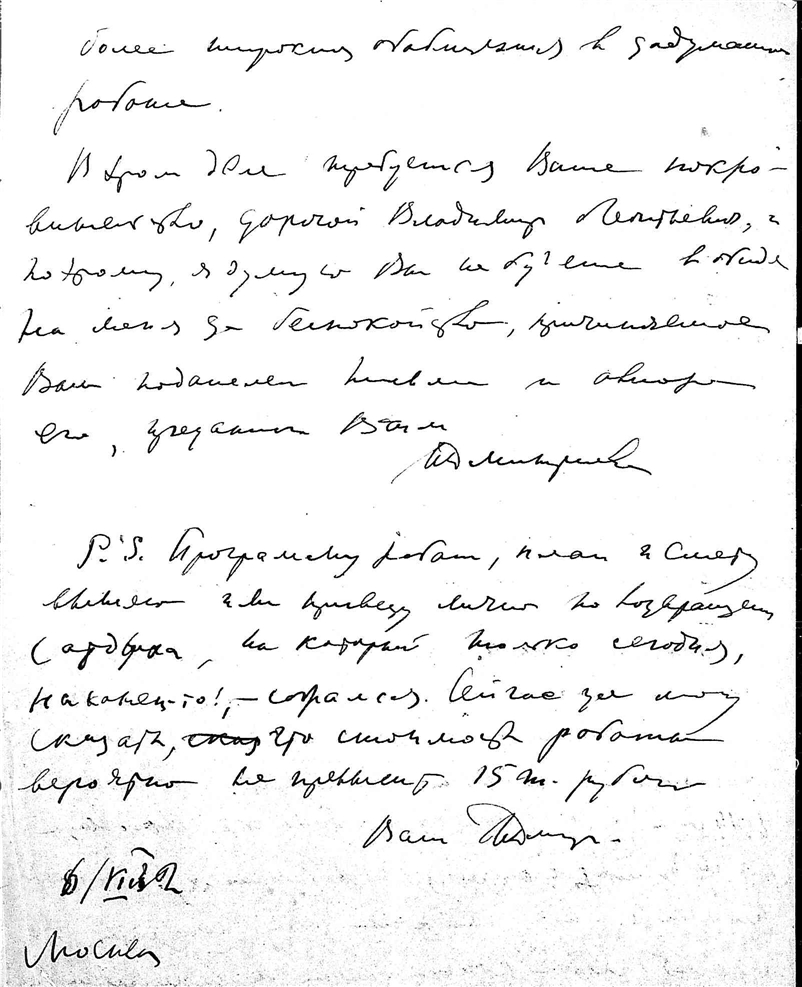 более широких обобщения в задуманной
работе.
В этом деле требуется Ваше покро-
вительство, дорогой Владимир Леонтьевич, и
поэтому, я думаю Вы не будете в обиде
на меня за беспокойство, причиняемое
Вам подателем письма и автором
его, преданным Вам
P.S. Программу работ, план и смету
вышлю или привезу лично по возвращении
с отдыха, на который только сегодня,
наконец-то!, - собрался. Сейчас же могу
сказать, что стоимость работ
вероятно не превысит 15 т. рублей
Ваш
Москва